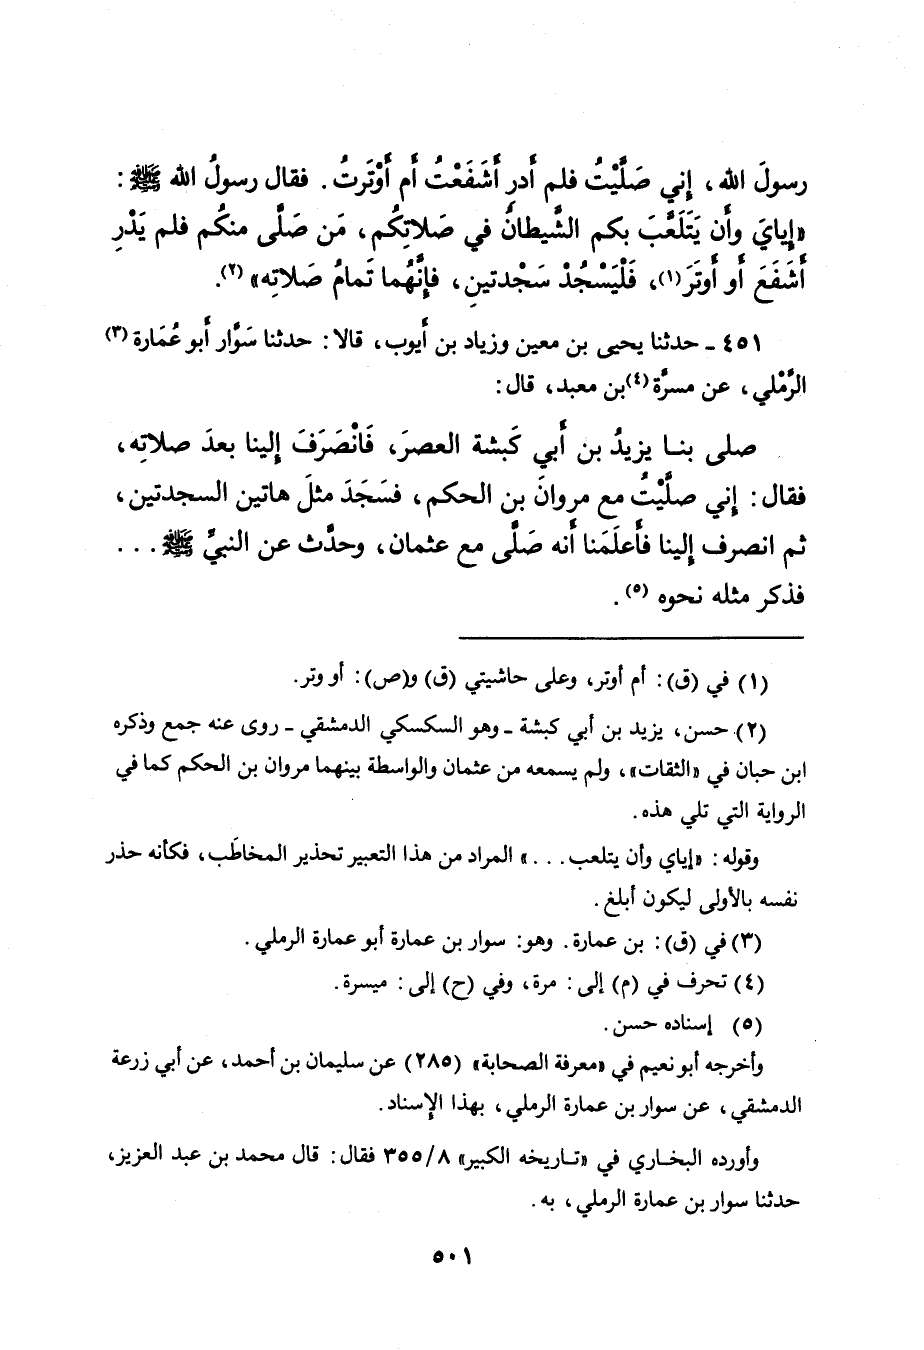 رسولَ الله، إني صَلَّيْتُ فلم أَدرِ أَشَفَعْتُ أَم أَوْتَرتُ. فقال رسولُ الله ﷺ:
«إيايَ وأَن يَتَلَعَّبَ بكم الشَّيطانُ في صَلاتِكُم، مَن صَلَّى منكم فلم يَدْرِ
أَشَفَعَ أَو أَوتَرَ(١)، فَلْيَسْجُدْ سَجْدتين، فإنَّهُما تَمامُ صَلاتِه» (٢).
٤٥١ ـ حدثنا يحيى بن معين وزياد بن أَيوب، قالا: حدثنا سَوَّار أَبو عُمَارة (٣)
الرَّمْلي، عن مسرَّة(٤)بن معبد، قال:
صلى بنا يزيدُ بن أَبي كَبشة العصرَ، فَانْصَرَفَ إلينا بعدَ صلاتِه،
فقال: إني صلَّيْتُ مع مروانَ بن الحكم، فسَجَدَ مثلَ هاتين السجدتين،
ثم انصرف إلينا فأَعلَمَنا أَنه صَلَّى مع عثمان، وحدَّث عن النبيِّ ﷺ ...
فذكر مثله نحوه (٥).
(١) في (ق): أم أوتر، وعلى حاشيتي (ق) و(ص): أو وتر.
(٢) حسن، يزيد بن أبي كبشة ـ وهو السكسكي الدمشقي ـ روى عنه جمع وذكره
ابن حبان في «الثقات»، ولم يسمعه من عثمان والواسطة بينهما مروان بن الحكم كما في
الرواية التي تلي هذه.
وقوله: «إياي وأن يتلعب...» المراد من هذا التعبير تحذير المخاطَب، فكأنه حذر
نفسه بالأولى ليكون أبلغ.
(٣) في (ق): بن عمارة. وهو: سوار بن عمارة أبو عمارة الرملي.
(٤) تحرف في (م) إلى: مرة، وفي (ح) إلى: ميسرة.
(٥) إسناده حسن.
وأخرجه أبو نعيم في «معرفة الصحابة» (٢٨٥) عن سليمان بن أحمد، عن أبي زرعة
الدمشقي، عن سوار بن عمارة الرملي، بهذا الإسناد.
وأورده البخاري في «تاريخه الكبير» ٣٥٥/٨ فقال: قال محمد بن عبد العزيز،
حدثنا سوار بن عمارة الرملي، به.
٥٠١